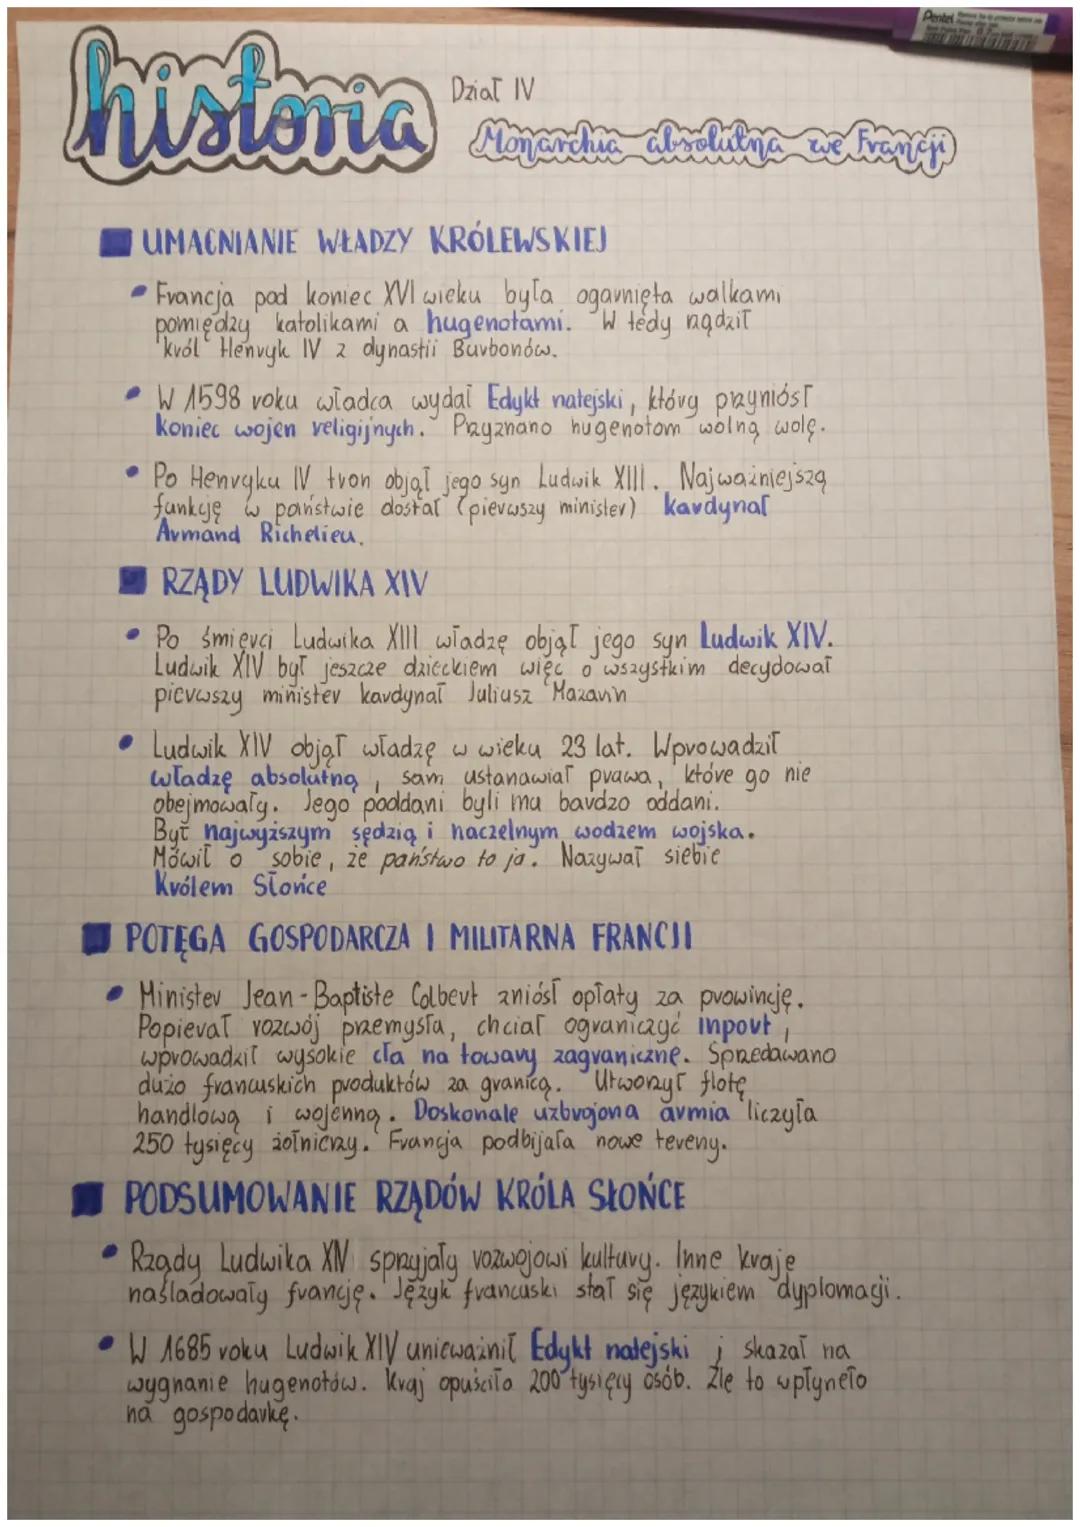 historia
Dział IV
Monarchia absolutna we Francji
UMACNIANIE WŁADZY KRÓLEWSKIEJ
Francja pod koniec XVI wieku była ogarnięta walkami
pomiędzy katolikami a hugenotami. W tedy rządził
król Henryk IV z dynastii Burbonów.
W 1598 roku władca wydał Edykt natejski, który przyniósł
koniec wojen religijnych. Przyznano hugenotom wolną wolę.
Po Henryku IV tron objął jego syn Ludwik XIII. Najważniejszą
funkcję w państwie dostał (pierwszy minister) kardynał
Armand Richelieu.
RZĄDY LUDWIKA XIV
Po śmierci Ludwika XIII władzę objął jego syn Ludwik XIV.
Ludwik XIV był jeszcze dzieckiem więc o wszystkim decydował
pierwszy minister kardynał Juliusz Mazarin
Ludwik XIV objął władzę w wieku 23 lat. Wprowadził
władzę absolutną, sam ustanawiał prawa, które go nie
obejmowały. Jego poddani byli mu bardzo oddani.
Był najwyższym sędzią i naczelnym wodzem wojska.
Mówił o sobie, że państwo to ja. Nazywał siebie
Królem Słońce
POTĘGA GOSPODARCZA I MILITARNA FRANCJI
Minister Jean-Baptiste Colbert zniósł opłaty za prowincję.
Popierał rozwój przemysłu, chciał ograniczyć inport,
wprowadził wysokie cła na towary zagraniczne. Sprzedawano
dużo francuskich produktów za granicą. Utworzył flotę
handlową i wojenną. Doskonale uzbrojona armia liczyła
250 tysięcy żołnierzy. Francja podbijała nowe tereny.
PODSUMOWANIE RZĄDÓW KRÓLA SŁOŃCE
Rządy Ludwika XIV sprzyjały rozwojowi kultury. Inne kraje
naśladowały francję. Język francuski stał się językiem dyplomacji.
W 1685 roku Ludwik XIV unieważnił Edykt natejski i skazał na
wygnanie hugenotów. Kraj opuściło 200 tysięcy osób. Źle to wpłynęło
na gospodarkę.
Pentel